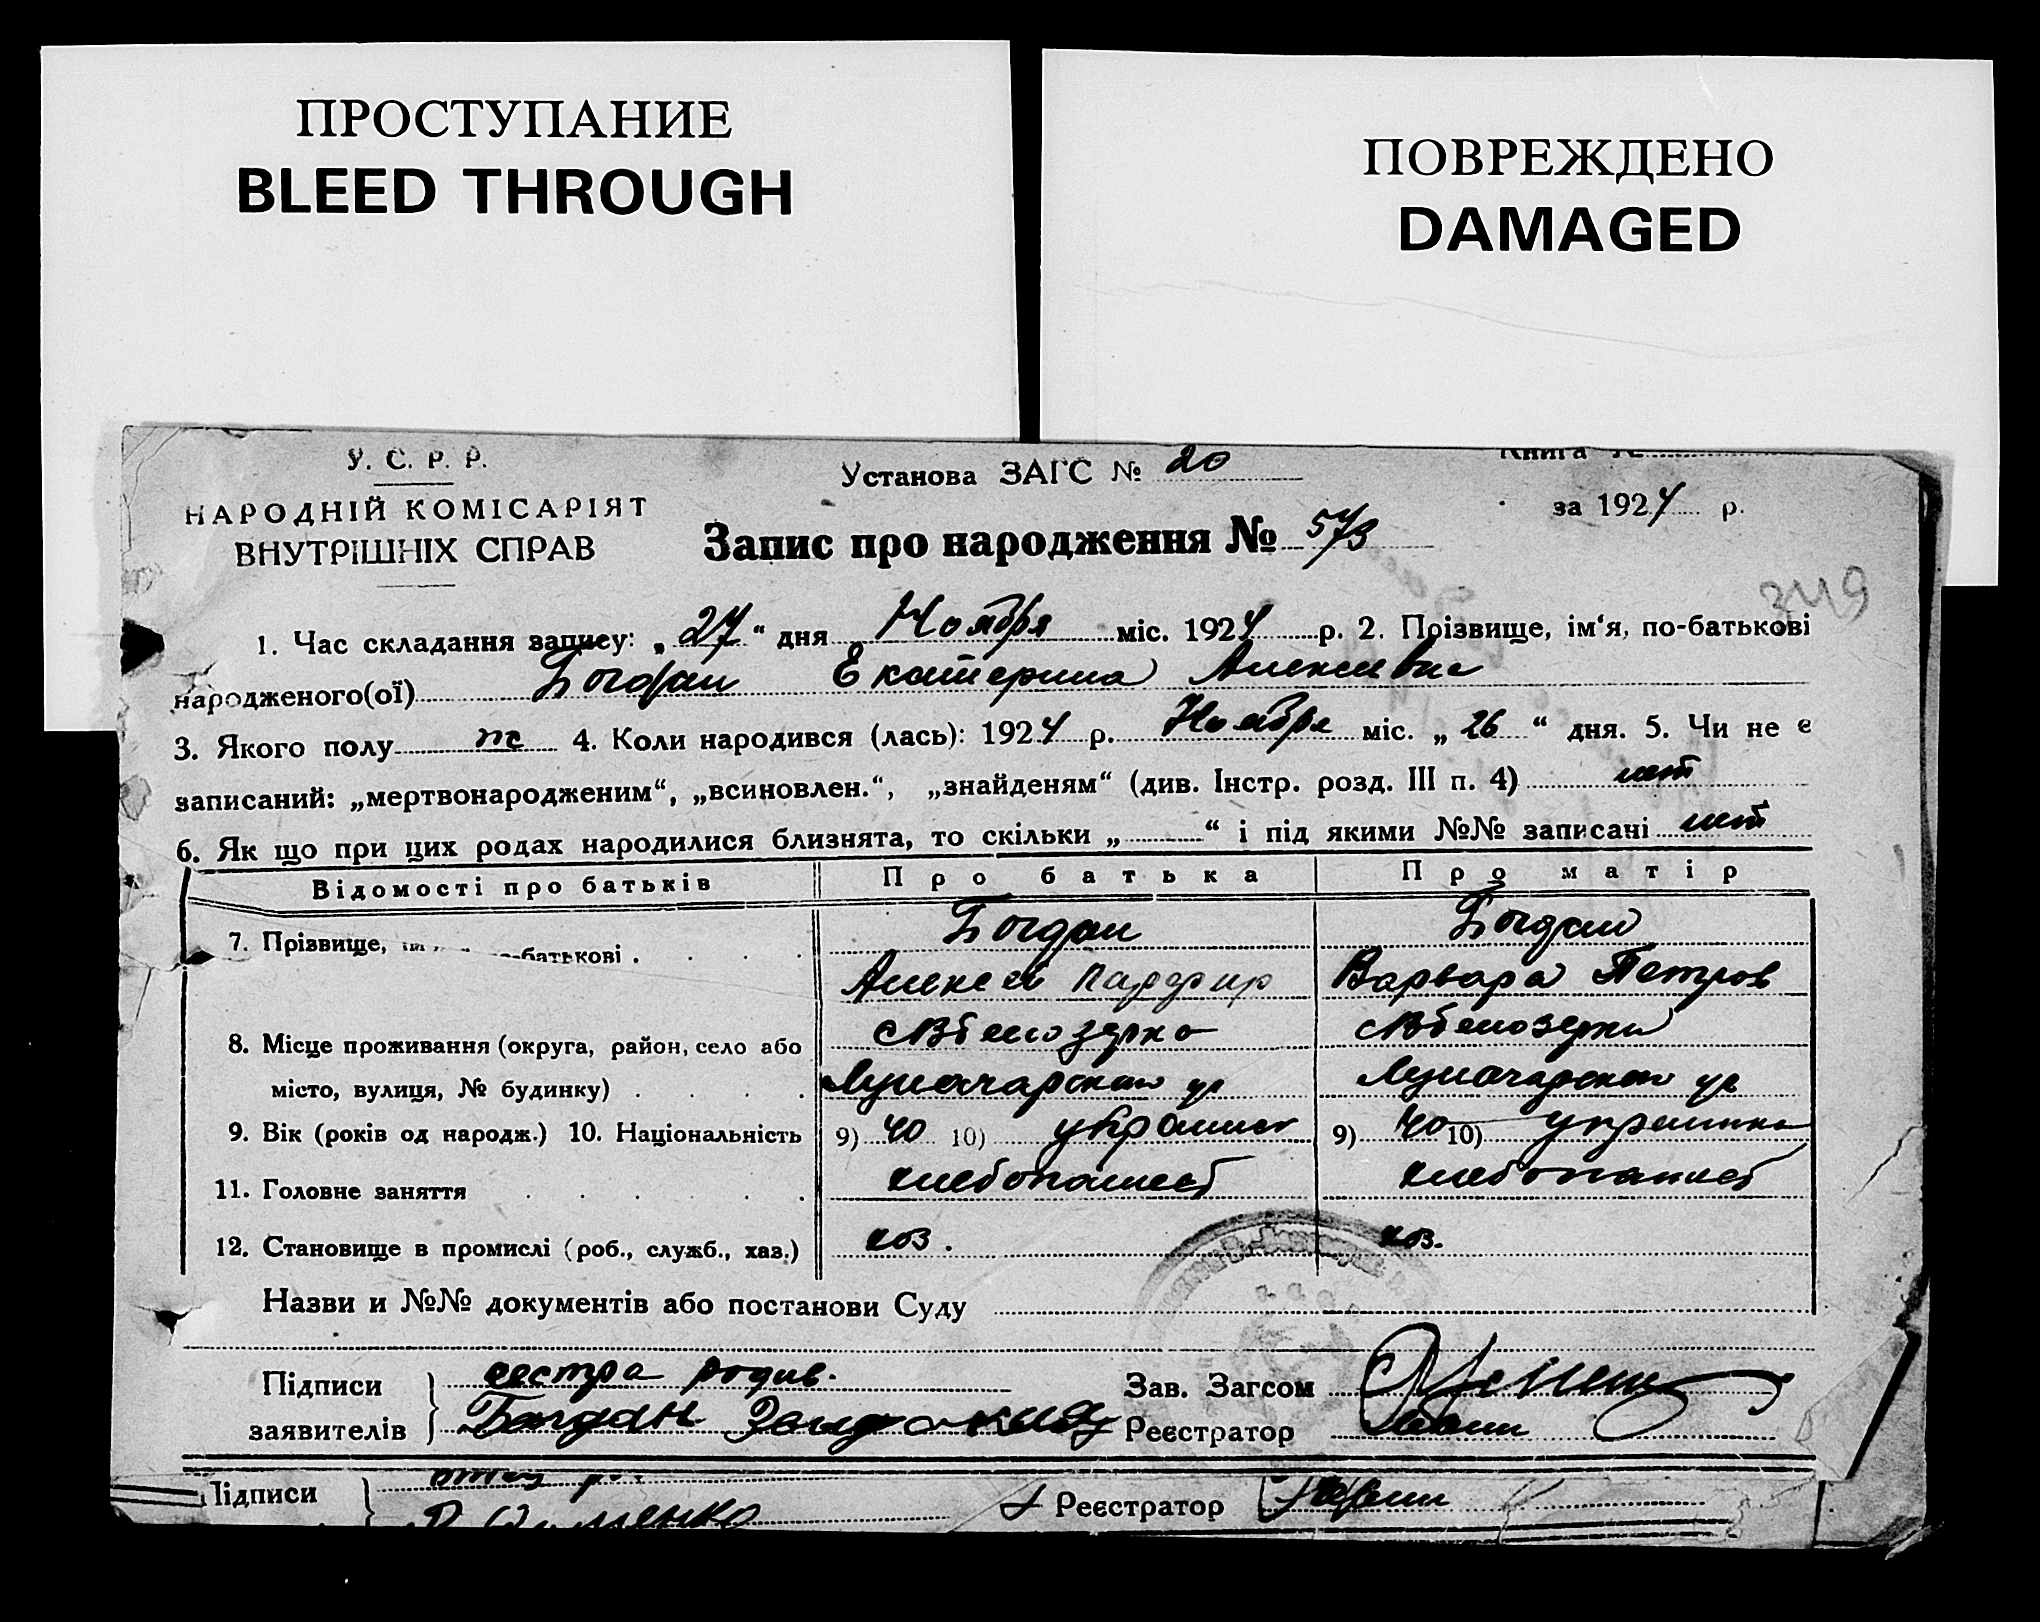 ПРОСТУПАНИЕ
BLEED THROUGH
ПОВРЕЖДЕНО
DAMAGED
У. С. Р. Р.
НАРОДНІЙ КОМІСАРІЯТ
ВНУТРІШНІХ СПРАВ
Установа ЗАГС № 20
Книга №
за 1924 р.
Запис про народження № 573
349
1. Час складання запису: „27“ дня Ноября міс. 1924 р. 2. Прізвище, ім‘я, по-батькові
народженого(ої) Богдан Екатерина Алексевна
3. Якого полу ж 4. Коли народився (лась): 1924 р. Ноября міс. „26“ дня. 5. Чи не є
записаний: „мертвонародженим“, „всиновлен.“, „знайденям“ (див. Інстр. розд. III п. 4) нет
6. Як що при цих родах народилися близнята, то скільки „ “ і під якими №№ записані нет
Відомості про батьків Про батька Про матір
7. Прізвище, -батькові . Богдан Богдан
Алексей Парфир Варвара Петров
8. Місце проживання (округа, район, село або с Белозерка с Белозерка
місто, вулиця, № будинку) . Луначарского ул Луначарского ул
9. Вік (років од народж.) 10. Національність 9) 40 10) украинец 9) 40 10) украинка
11. Головне заняття хлебопашест хлебопашест
12. Становище в промислі (роб., служб., хаз.) хоз. хоз.
Назви и №№ документів або постанови Суду
Підписи сестра родив. Зав. Загсом
заявителів Богдан Реєстратор
Підписи отец Реєстратор